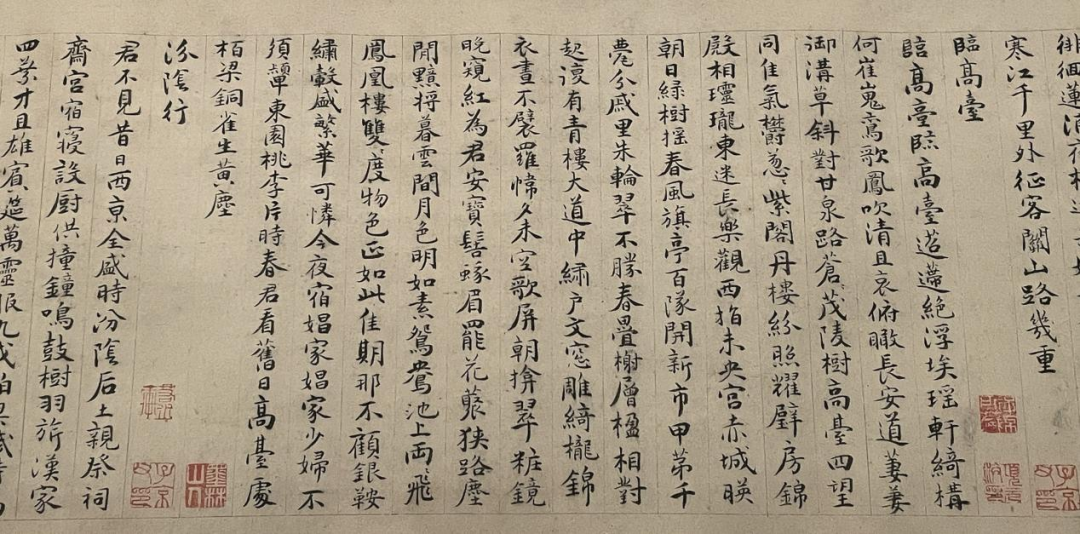 徘徊蓮浦夜相逢
寒江千里外征客關山路幾重
臨高臺
臨高臺臨高臺迢遰絕浮埃瑤軒綺構
何崔嵬鸞歌鳳吹清且哀俯瞰長安道萋萋
御溝草斜對甘泉路蒼茂陵樹高臺四望
同佳氣欝葱々紫閣丹樓紛照耀璧房錦
殿相玲瓏東迷長樂觀西指未央宮赤城暎
朝日綠樹搖春風旗亭百隊開新市甲第千
甍分戚里朱輪翠不勝春疊榭層楹相對
起復有青樓大道中繡戶文窓雕綺櫳錦
衣晝不襞羅幃夕未空歌屏朝掩翠粧鏡
晚窺紅為君安寶髻蛾眉罷花藂狹路塵
間黯將暮雲間月色明如素鴛鴦池上兩々飛
鳳凰樓雙々度物色正如此佳期那不顧銀鞍
繡轂盛繁華可憐今夜宿娼家娼家少婦不
須顰東園桃李片時春君看舊日高臺處
栢梁銅雀生黃塵
汾陰行
君不見昔日西京全盛時汾陰后土親祭祠
齋宮宿寢設厨供撞鐘鳴鼓樹羽旂漢家
四葉才且雄賓筵萬靈服九戎柏梁賦詩高
子京父印
墨林山人